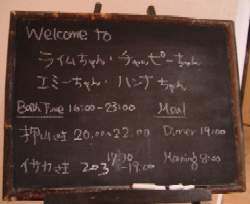 Welcome to
ライムちゃん・チャッピーちゃん
エミーちゃん・ハンナちゃん
Bath Time 16:00-23:00 Meal
押山様 20:00~22:00 Dinner 19:00
イサカ様 203 17:30-19:00 Morning 8:00